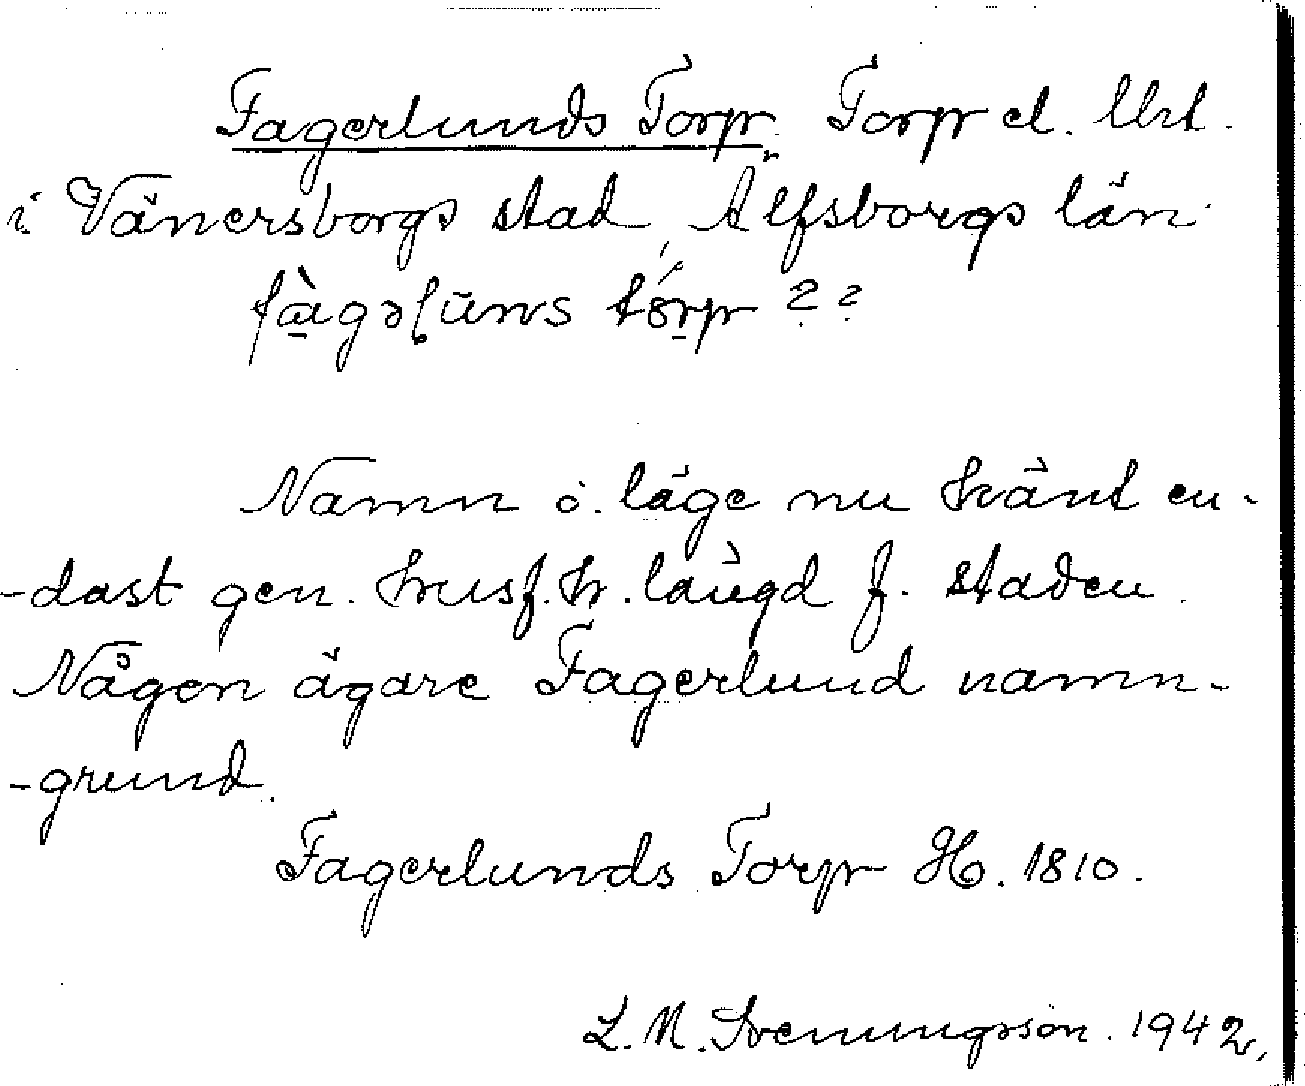 Fagerlunds Torp. Torp el. Urt.
i Vänersborgs stad, Älfsborgs län
Namn o. läge nu känt en-
-dast gen. husf.h. längd f. staden.
Någon ägare Fagerlund namn-
-grund.
Fagerlunds Torp H. 1810.
L. M. Svenungsson. 1942,